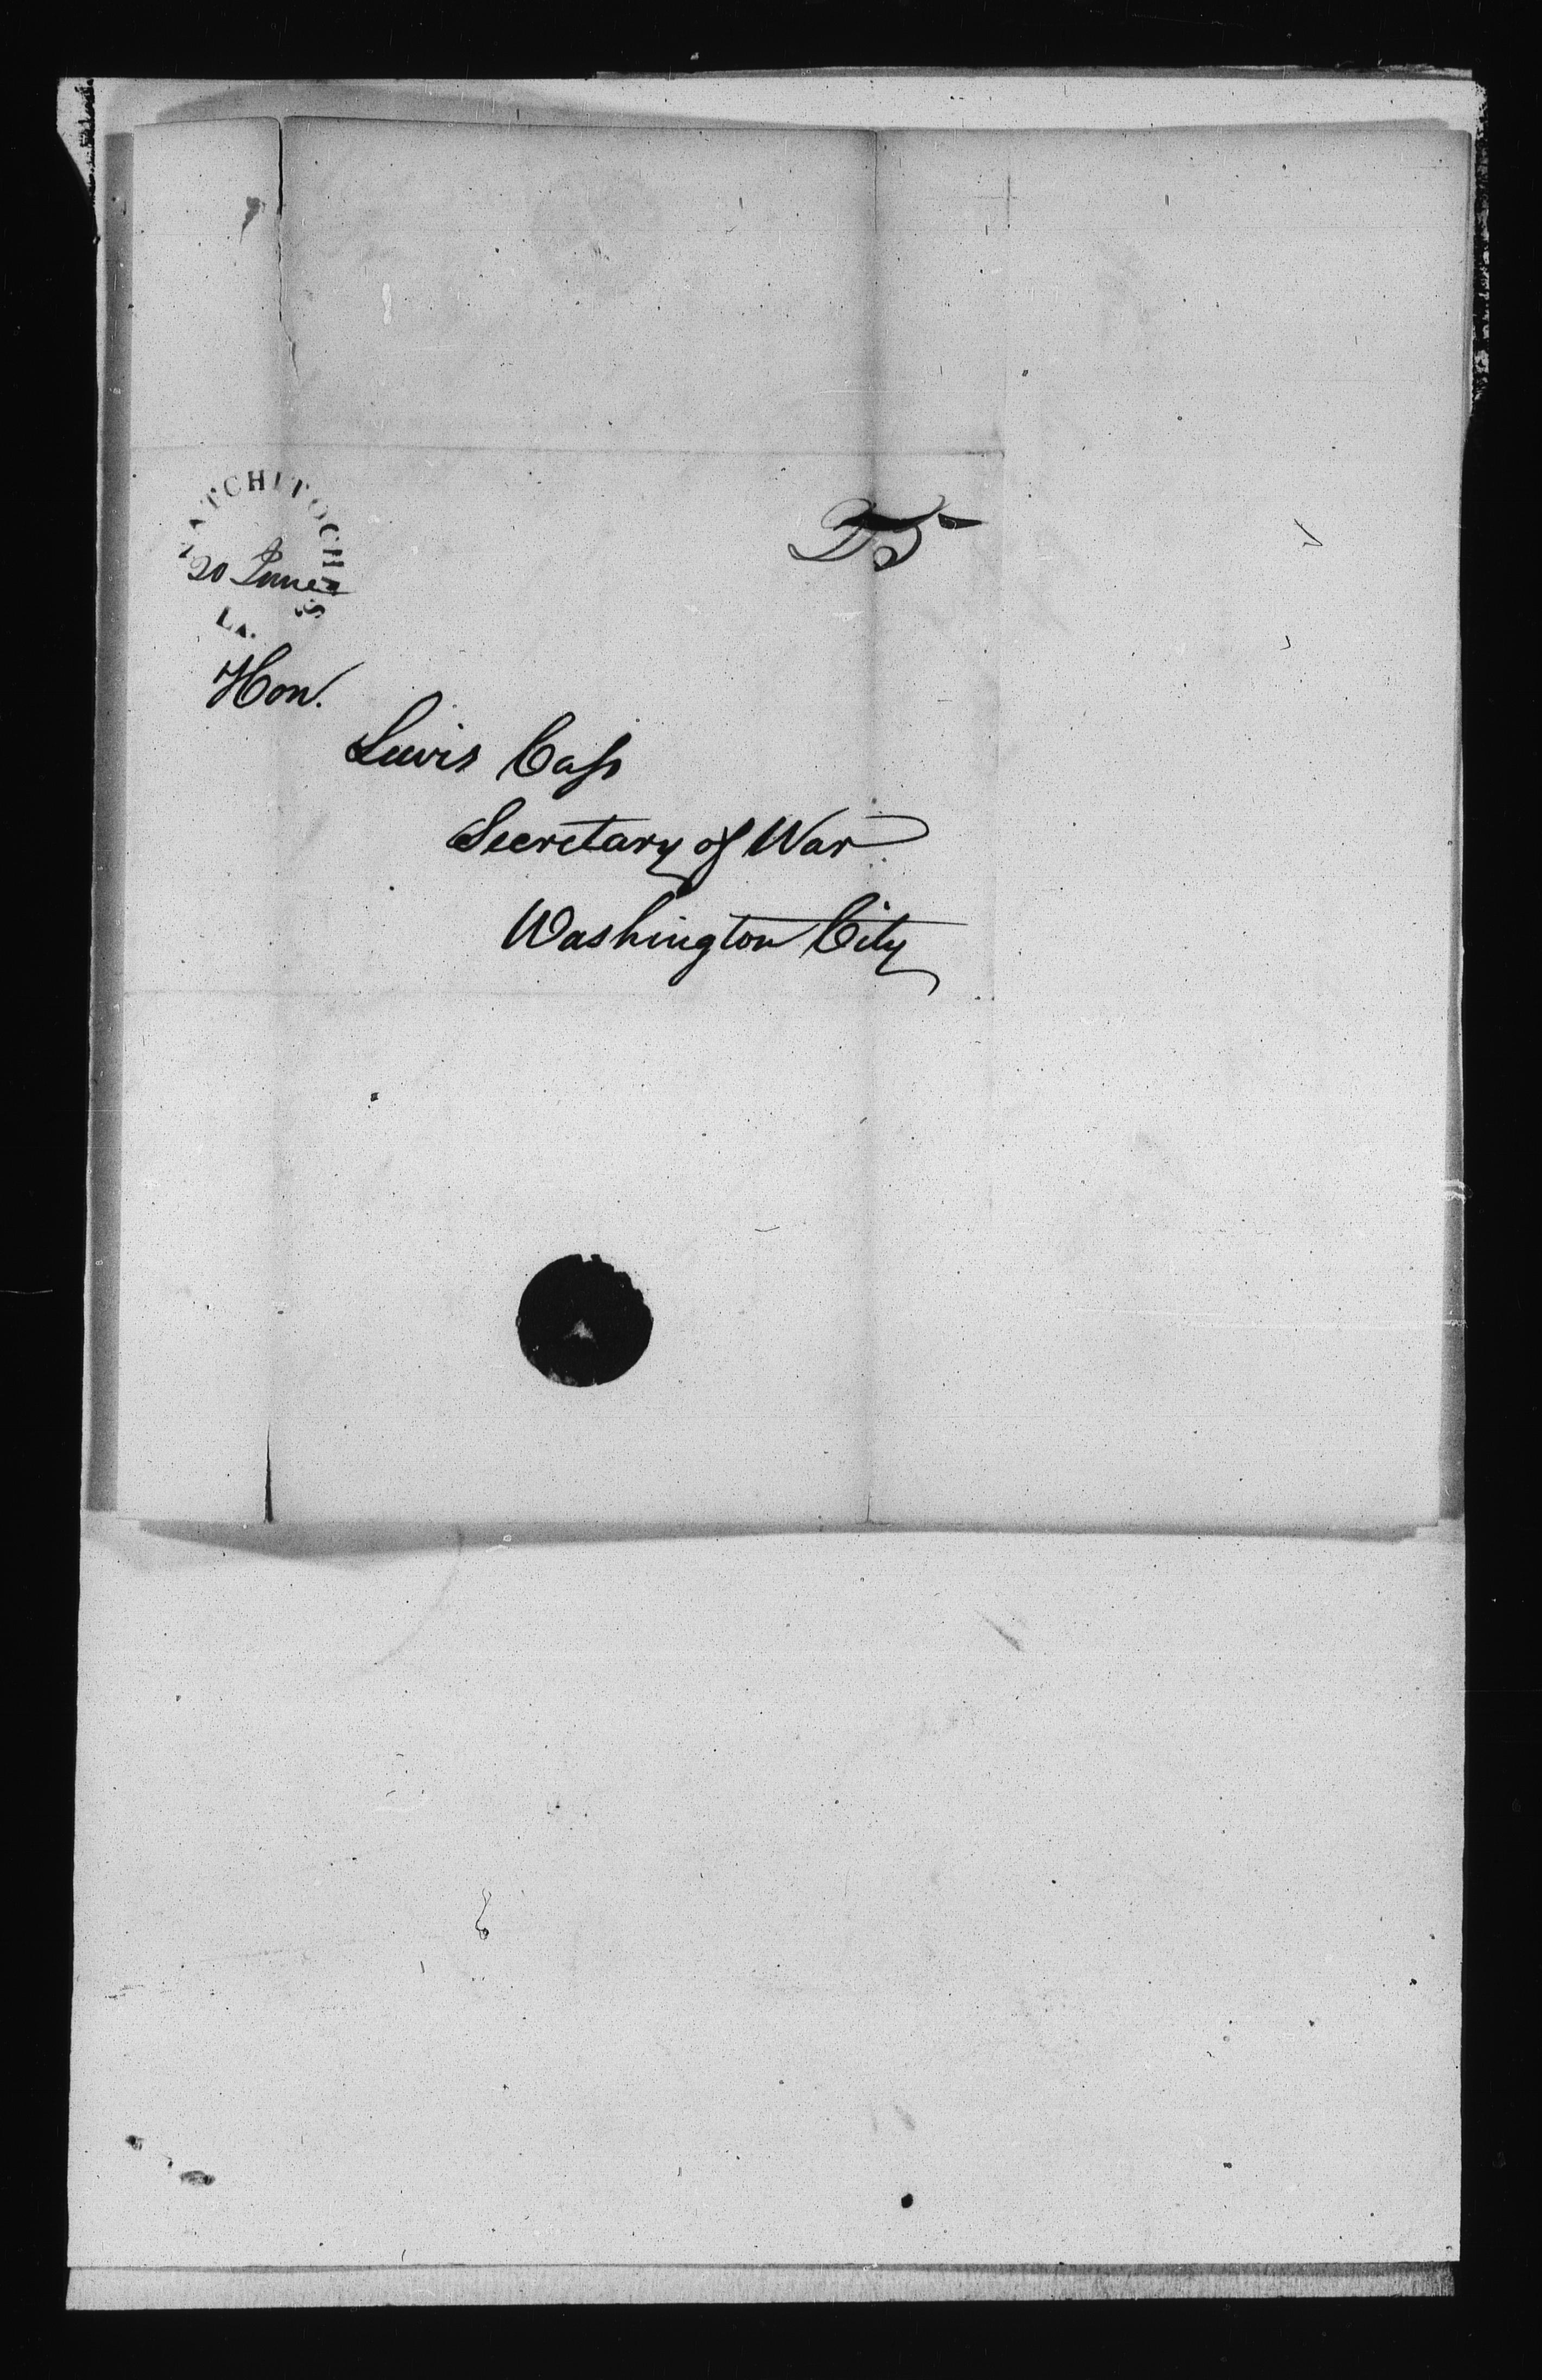 NATCHITOCHES
20 June
LA.
25
Hon.
Lewis Cass
Secretary of War
Washington City